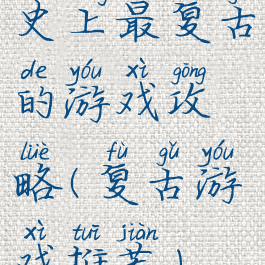 史上最复古
de yóu xì gōng
的游戏攻
lüè fù gǔ yóu
略(复古游
xì tuī jiàn
戏推荐)